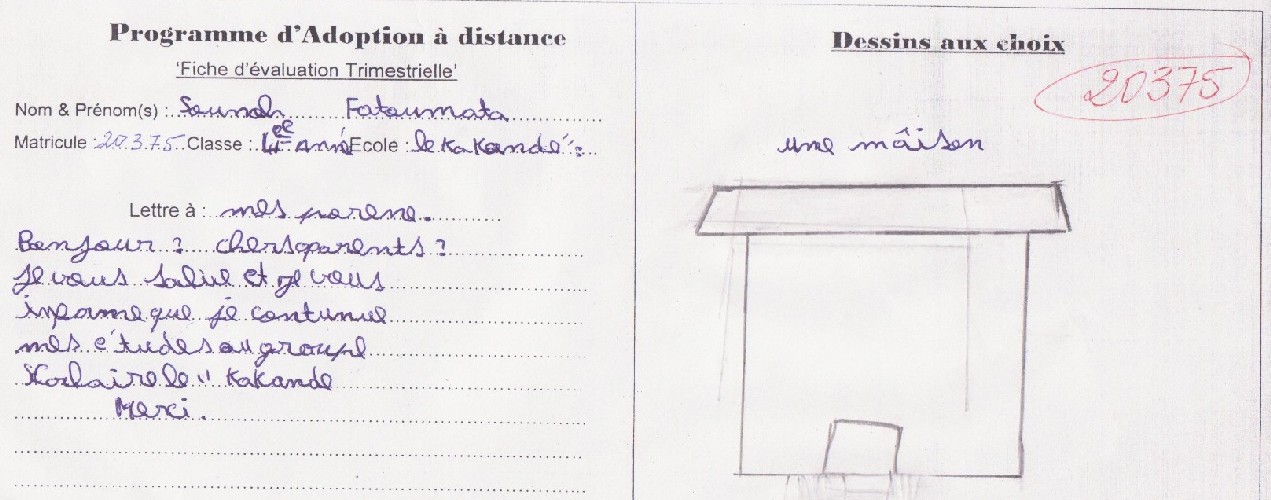 Programme d'Adoption à distance
'Fiche d'évaluation Trimestrielle'
Nom & Prénom(s) : Soumah Fatoumata
Matricule : 20375 Classe : 4ee Anné Ecole : le Kakandé
Lettre à : mes parene.
Bonjour ? chersparents ?
je vous salue et je vous
informe que je contunue
mes études au groupe
scolaire le " Kakande
Merci.
Dessins aux choix
20375
une mâison